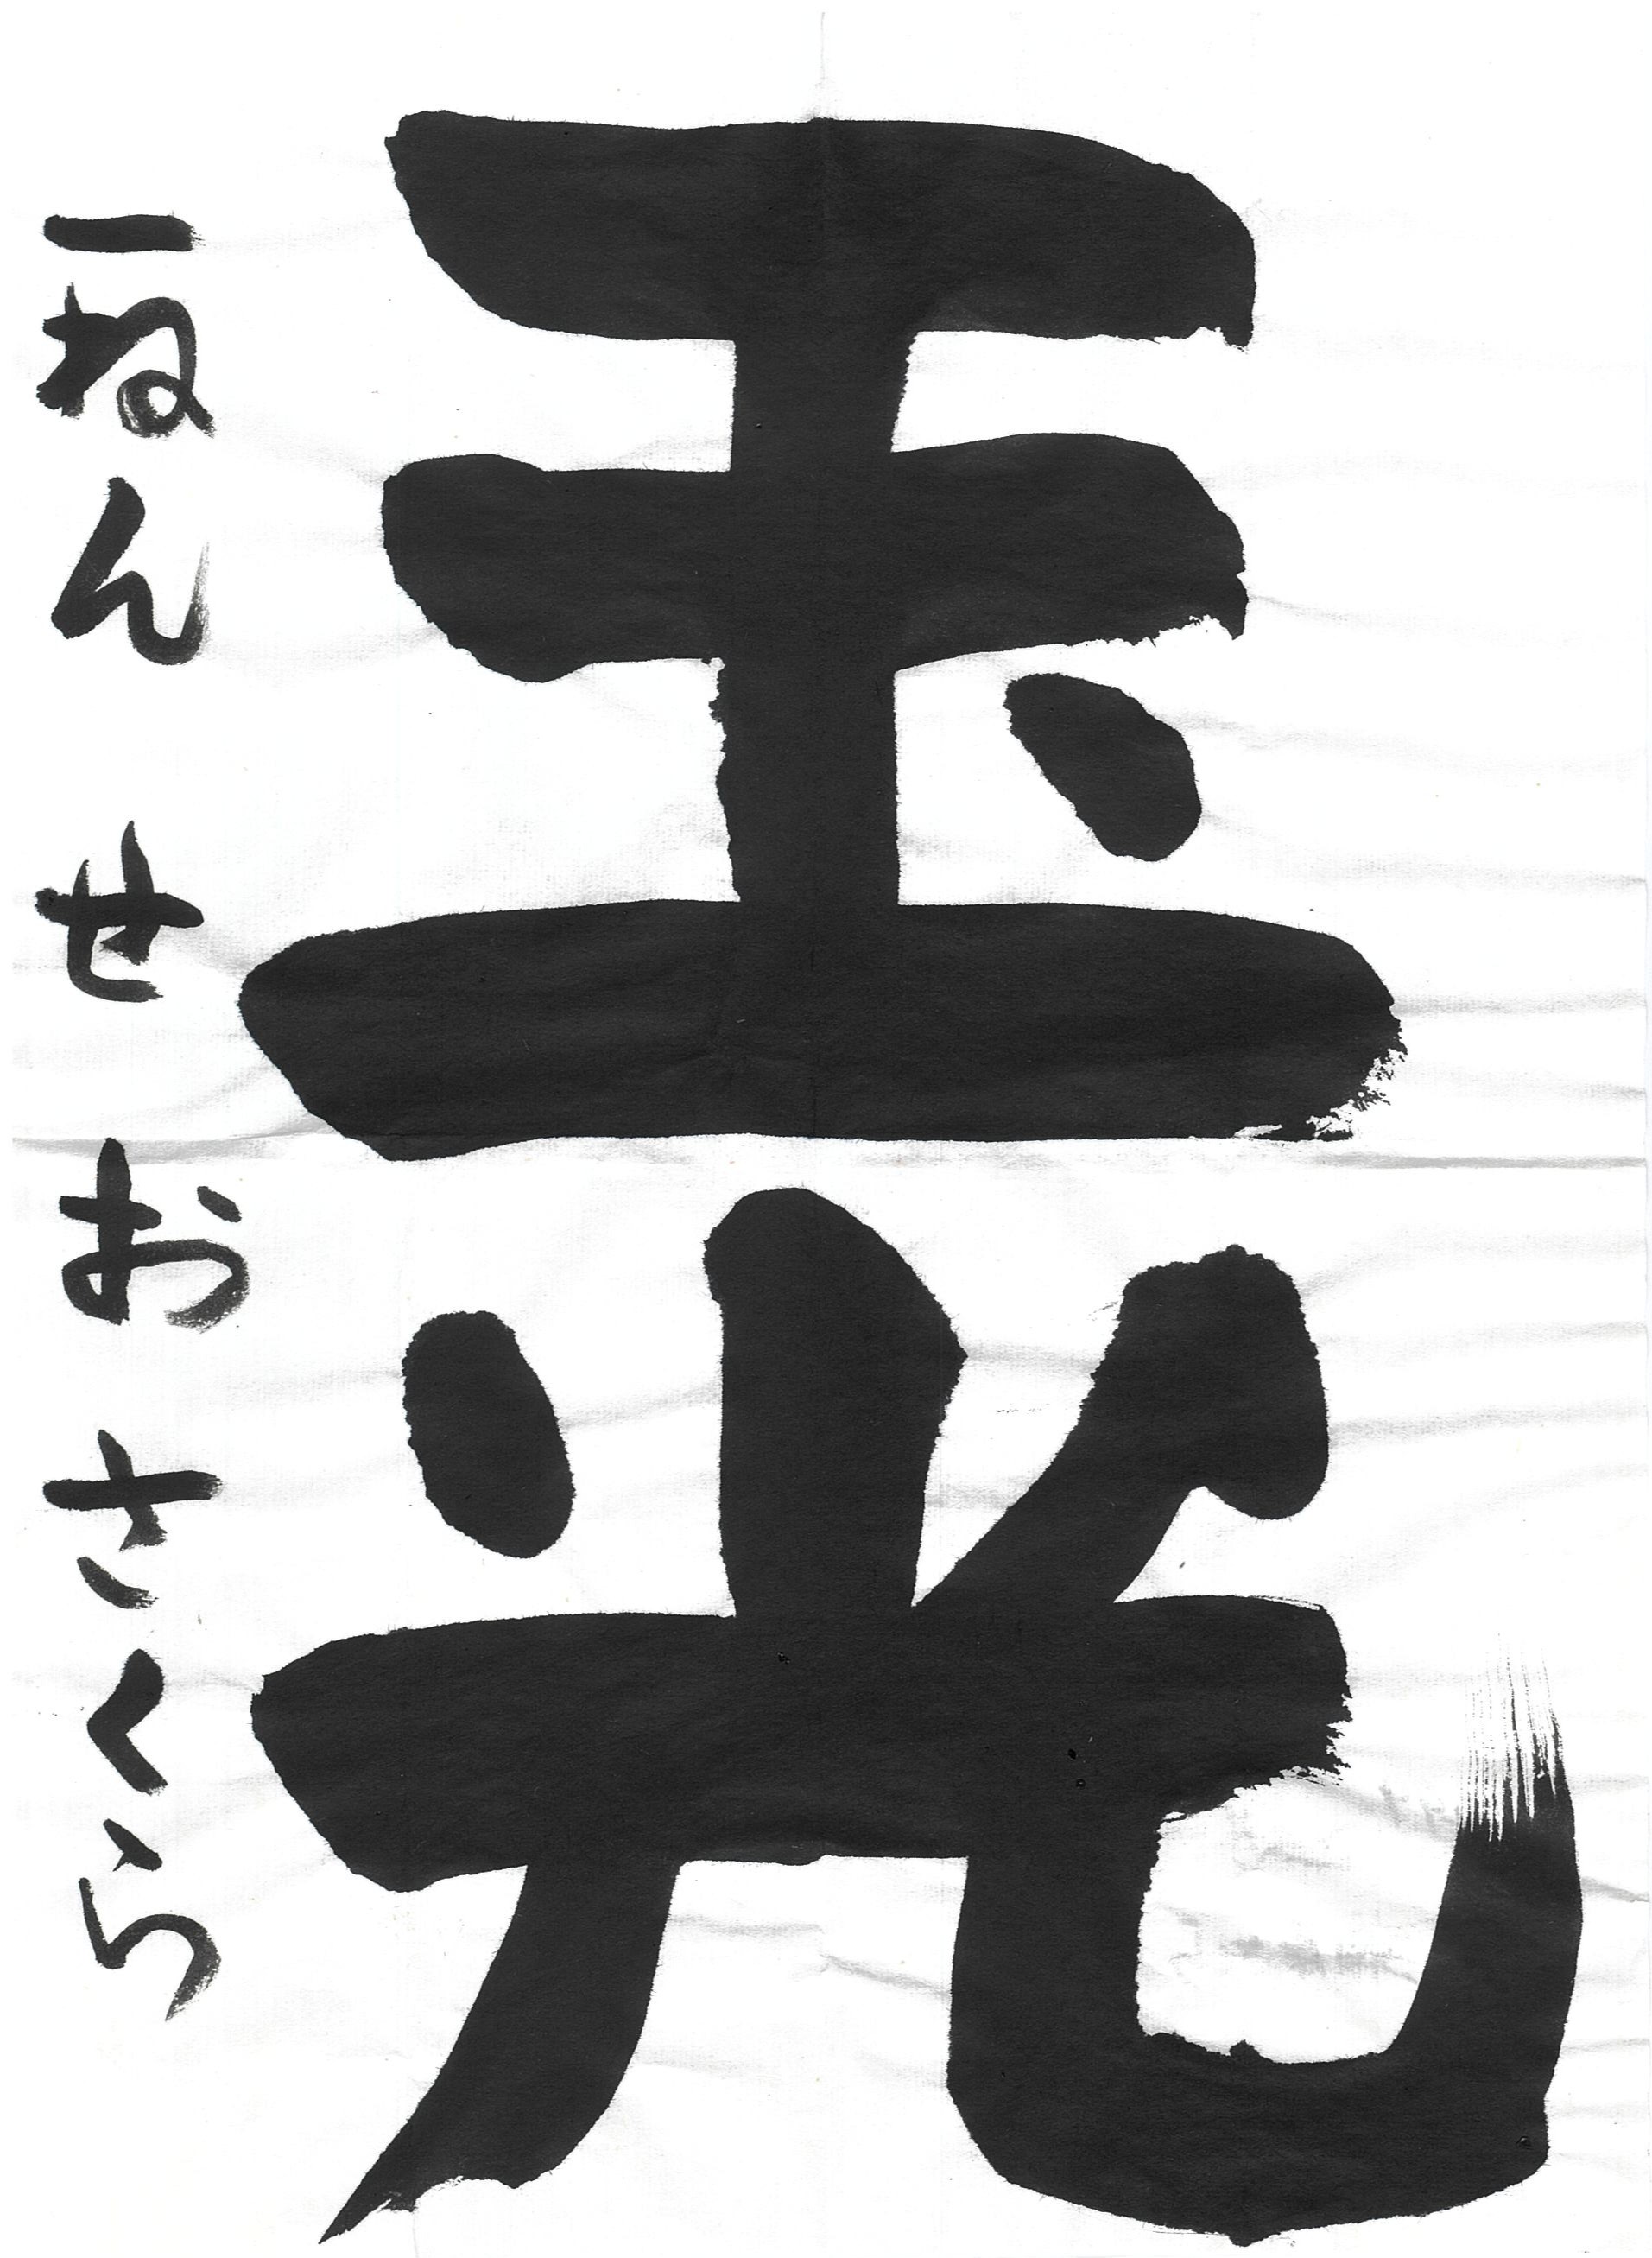 玉光
一ねん せお さくら